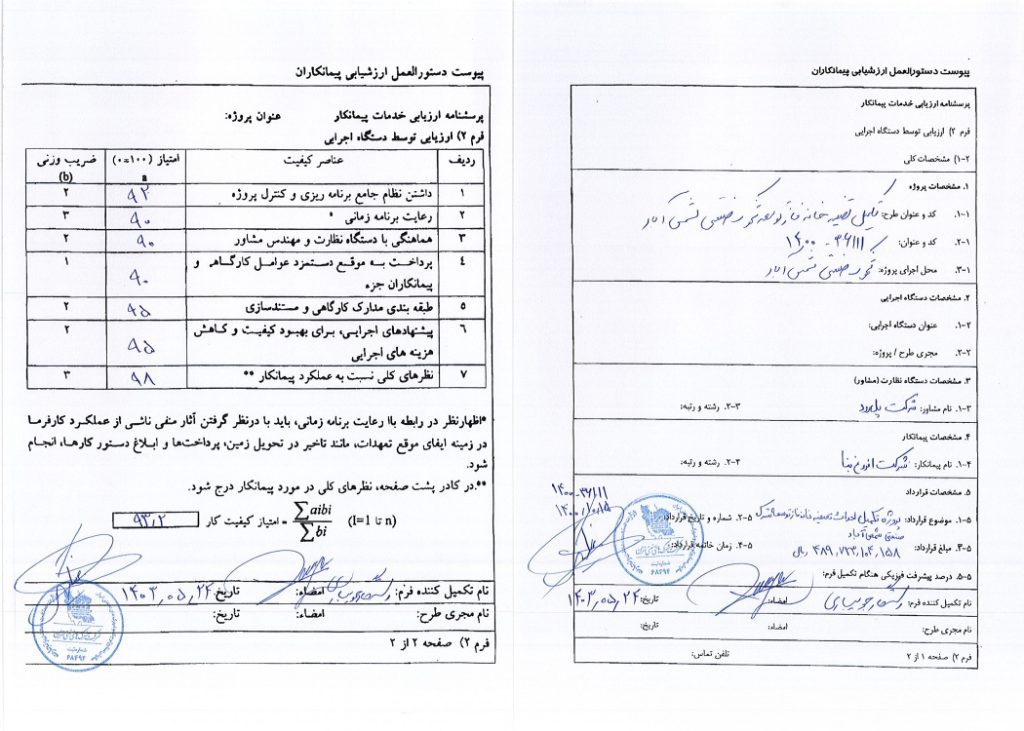 پیوست دستورالعمل ارزشیابی پیمانکاران
پرسشنامه ارزیابی خدمات پیمانکار
فرم ۲) ارزیابی توسط دستگاه اجرایی
۱-۲) مشخصات کلی
۱. مشخصات پروژه
۱-۱. کد و عنوان طرح: تکمیل تصفیه خانه فاز توسعه شهرک صنعتی شمس آباد
۲-۱. کد و عنوان: ۱۴۰۰-۳۶۱۱۱
۳-۱. محل اجرای پروژه: شهرک صنعتی شمس آباد
۲. مشخصات دستگاه اجرایی
۱-۲. عنوان دستگاه اجرایی:
۲-۲. مجری طرح / پروژه:
۳. مشخصات دستگاه نظارت (مشاور)
۱-۳. نام مشاور: شرکت ۲-۳. رشته و رتبه:
۴. مشخصات پیمانکار
۱-۴. نام پیمانکار: شرکت ۲-۴. رشته و رتبه:
۵. مشخصات قرارداد
۱-۵. موضوع قرارداد: پروژه تکمیل احداث تصفیه خانه فاز توسعه شهرک صنعتی شمس آباد ۲-۵. شماره و تاریخ قرارداد: ۱۴۰۰-۳۶۱۱۱
۱۴۰۰/۱۰/۱۵
۳-۵. مبلغ قرارداد: ۴۸۹,۷۲۳,۱۰۴,۱۵۸ ریال ۴-۵. زمان خاتمه قرارداد:
۵-۵. درصد پیشرفت فیزیکی هنگام تکمیل فرم:
نام تکمیل کننده فرم: امضاء: تاریخ: ۱۴۰۳,۰۵,۲۴
نام مجری طرح: امضاء: تاریخ:
فرم ۲) صفحه ۱ از ۲ تلفن تماس:
پیوست دستورالعمل ارزشیابی پیمانکاران
پرسشنامه ارزیابی خدمات پیمانکار عنوان پروژه:
فرم ۲) ارزیابی توسط دستگاه اجرایی
ردیف عناصر کیفیت امتیاز (۱۰۰=۰) a ضریب وزنی (b)
۱ داشتن نظام جامع برنامه ریزی و کنترل پروژه ۹۲ ۲
۲ رعایت برنامه زمانی * ۹۰ ۳
۳ هماهنگی با دستگاه نظارت و مهندس مشاور ۹۰ ۲
۴ پرداخت به موقع دستمزد عوامل کارگاهی و
پیمانکاران جزء ۹۰ ۱
۵ طبقه بندی مدارک کارگاهی و مستندسازی ۹۵ ۲
۶ پیشنهادهای اجرایی، برای بهبود کیفیت و کاهش
هزینه های اجرایی ۹۵ ۲
۷ نظرهای کلی نسبت به عملکرد پیمانکار ** ۹۸ ۳
*اظهارنظر در رابطه باا رعایت برنامه زمانی، باید با درنظر گرفتن آثار منفی ناشی از عملکرد کارفرما
در زمینه ایفای موقع تعهدات، مانند تاخیر در تحویل زمین، پرداخت‌ها و ابلاغ دستور کارها، انجام
شود.
**.در کادر پشت صفحه، نظرهای کلی در مورد پیمانکار درج شود.
(I=1 تا n) ∑aibi / ∑bi = امتیاز کیفیت کار ۹۳٫۲
نام تکمیل کننده فرم: امضاء: تاریخ: ۱۴۰۳,۰۵,۲۴
نام مجری طرح: امضاء: تاریخ:
فرم ۲) صفحه ۲ از ۲